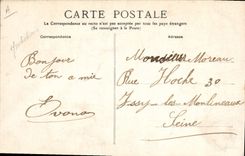 CARTE POSTALE
La Correspondance au recto n'est pas acceptée par tous les pays étrangers
(Se renseigner à la Poste)
Correspondance
Adresse
Bonjour
de ton a mie
Yvona
Monsieur Moreau
Rue Hoche 30
Issy les Moulineaux
Seine